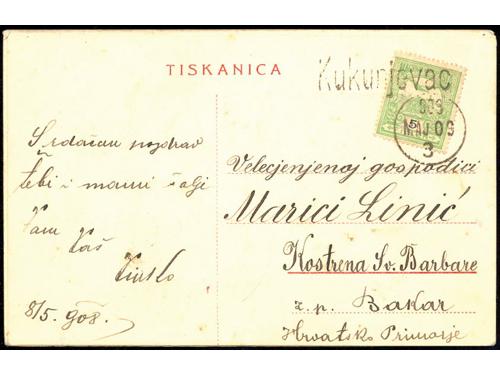 TISKANICA
Kukunjevac
908
MAJ 09
3
Srdačan pozdrav
tebi i mami šalje
Vam Vaš
8/5. 908.
Velecjenjenoj gospodici
Marici Linić
Kostrena Sv. Barbare
z. p. Bakar
Hrvatsko Primorje